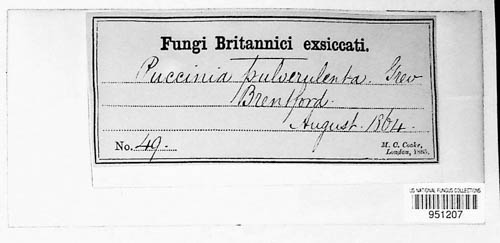 Fungi Britannici exsiccati.
Puccinia pulverulenta. Grev
Brentford.
August. 1864.
No. 49.
M. C. Cooke,
London, 1865.
US NATIONAL FUNGUS COLLECTIONS
951207